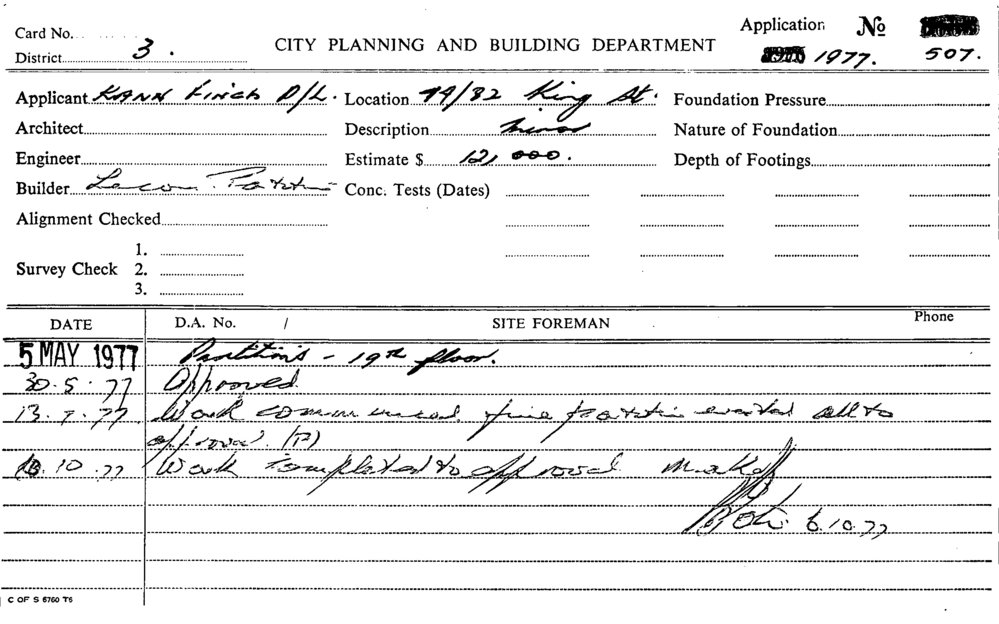 Card No.
District 3.
CITY PLANNING AND BUILDING DEPARTMENT
Application No
1977. 507.
Applicant KANN Finch P/L. Location 79/82 King St. Foundation Pressure
Architect Description minor Nature of Foundation
Engineer Estimate $ 12,000. Depth of Footings
Builder Conc. Tests (Dates)
Alignment Checked
1.
Survey Check 2.
3.
DATE D.A. No. / SITE FOREMAN Phone
5 MAY 1977 Partitions - 19th floor.
30.5.77 Approved
13.7.77 Work commenced fire erected all to
approval. (P)
10.77 Work completed to approval
6.10.77
C OF S 6760 T6